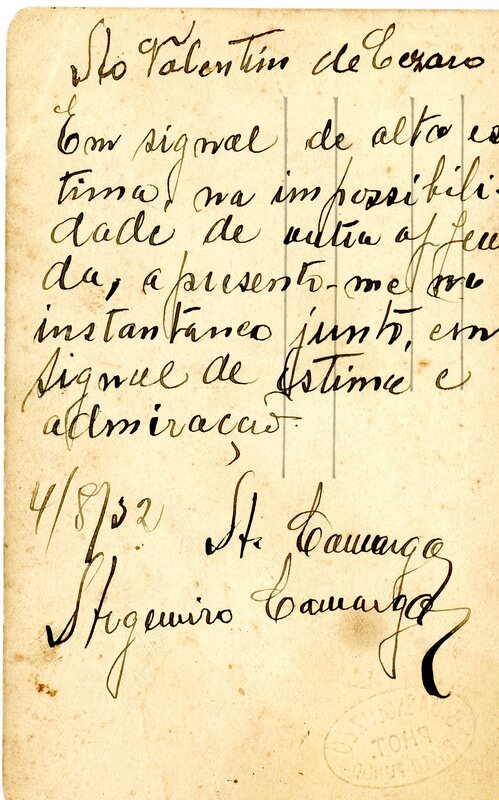 Ao Valentin de Cezaro
Em signal de alta es
tima, na impossibili-
dade de outra offeren
da, apresento-me no
instantaneo junto, em
signal de estima e
admiração
4/8/32
A. Camargo
Argemiro Camargo
PHOT.
PASSO FUNDO